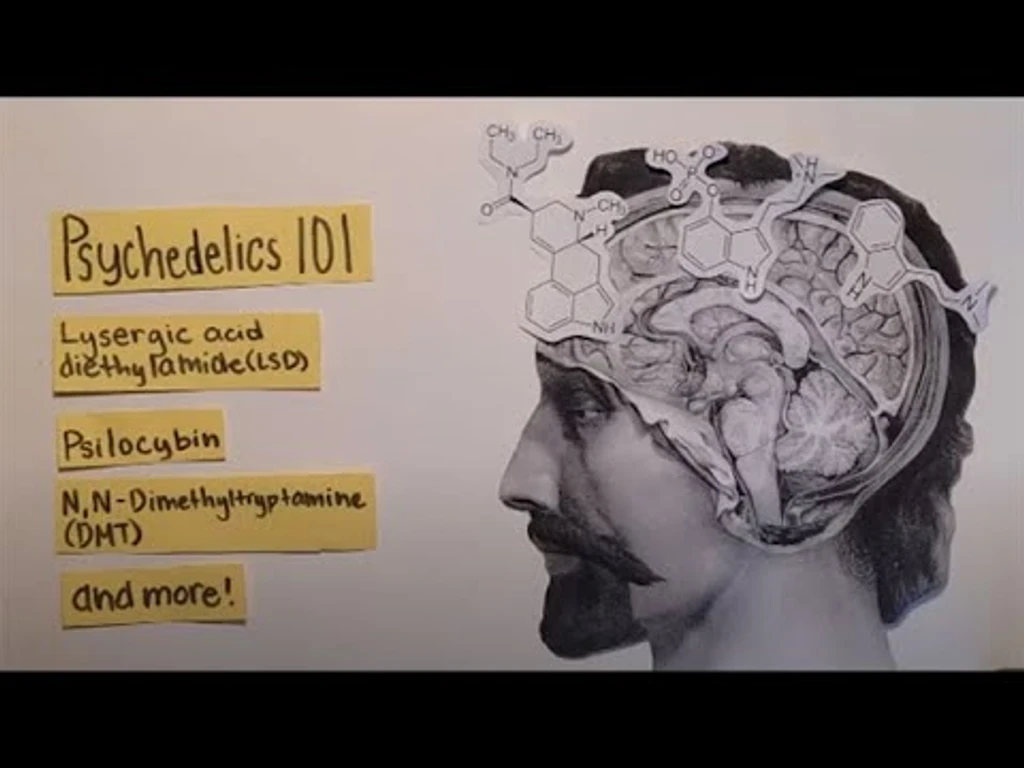 Psychedelics 101
Lysergic acid
diethylamide(LSD)
Psilocybin
N,N-Dimethyltryptamine
(DMT)
and more!
CH₃ CH₃
N
O
N-CH₃
H
NH
HO O
P
O O
H
N
N
H
NH
N